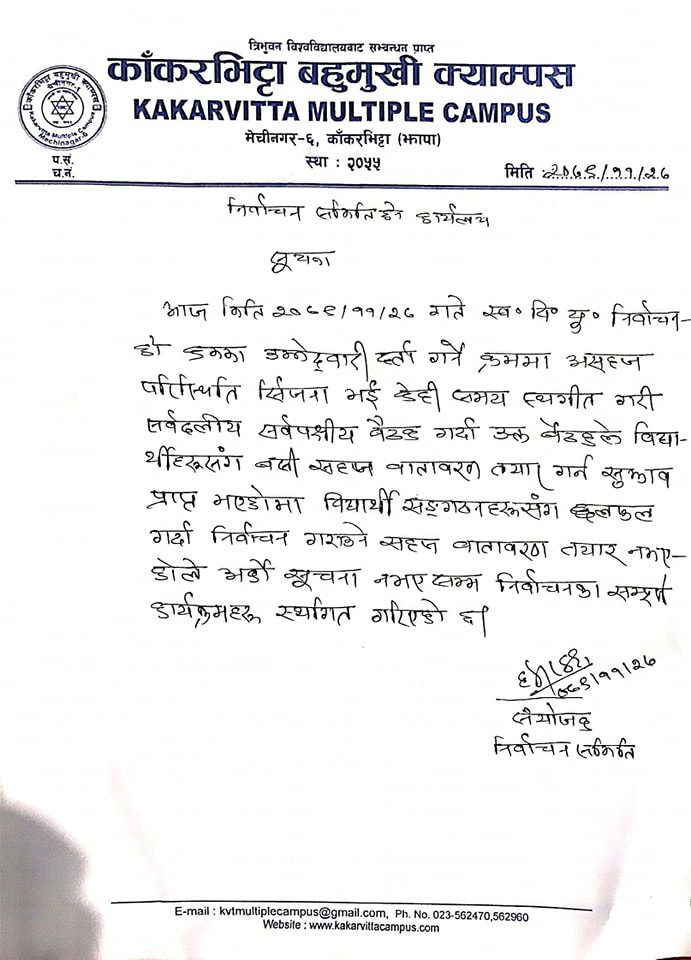 त्रिभुवन विश्वविद्यालयबाट सम्बन्धन प्राप्त
काँकरभिट्टा बहुमुखी क्याम्पस
KAKARVITTA MULTIPLE CAMPUS
मेचीनगर-६, काँकरभिट्टा (झापा)
स्था : २०५५
प.सं.
च.नं.
मिति :२०७९/११/२६
निर्वाचन समितिको कार्यालय
सूचना
आज मिति २०७९/११/२६ गते स्व॰ वि॰ यु॰ निर्वाचन-
को क्रममा उम्मेद्वारी दर्ता गर्ने क्रममा असहज
परिस्थिति सिर्जना भई केही समय स्थगीत गरी
सर्वदलीय सर्वपक्षीय बैठक गर्दा उक्त बैठकले विद्या-
र्थीहरूसंग बसी सहज वातावरण तयार गर्न सुझाव
प्राप्त भएकोमा विद्यार्थी सङ्गठनहरूसंग छलफल
गर्दा निर्वाचन गराउने सहज वातावरण तयार नभए-
कोले अर्को सूचना नभए सम्म निर्वाचनका सम्पूर्ण
कार्यक्रमहरू स्थगित गरिएको छ।
०७९/११/२६
संयोजक
निर्वाचन समिति
E-mail : kvtmultiplecampus@gmail.com, Ph. No. 023-562470,562960
Website : www.kakarvittacampus.com